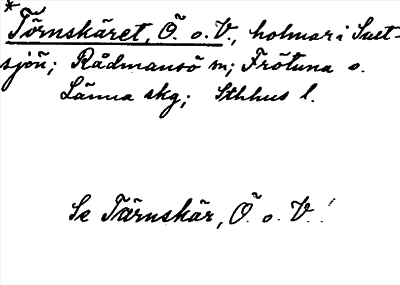 * Törnskäret, Ö. o. V., holmar i Svet-
sjön; Rådmansö sn; Frötuna o.
Länna skg; Sthlms l.
Se Tärnskär, Ö. o. V.!